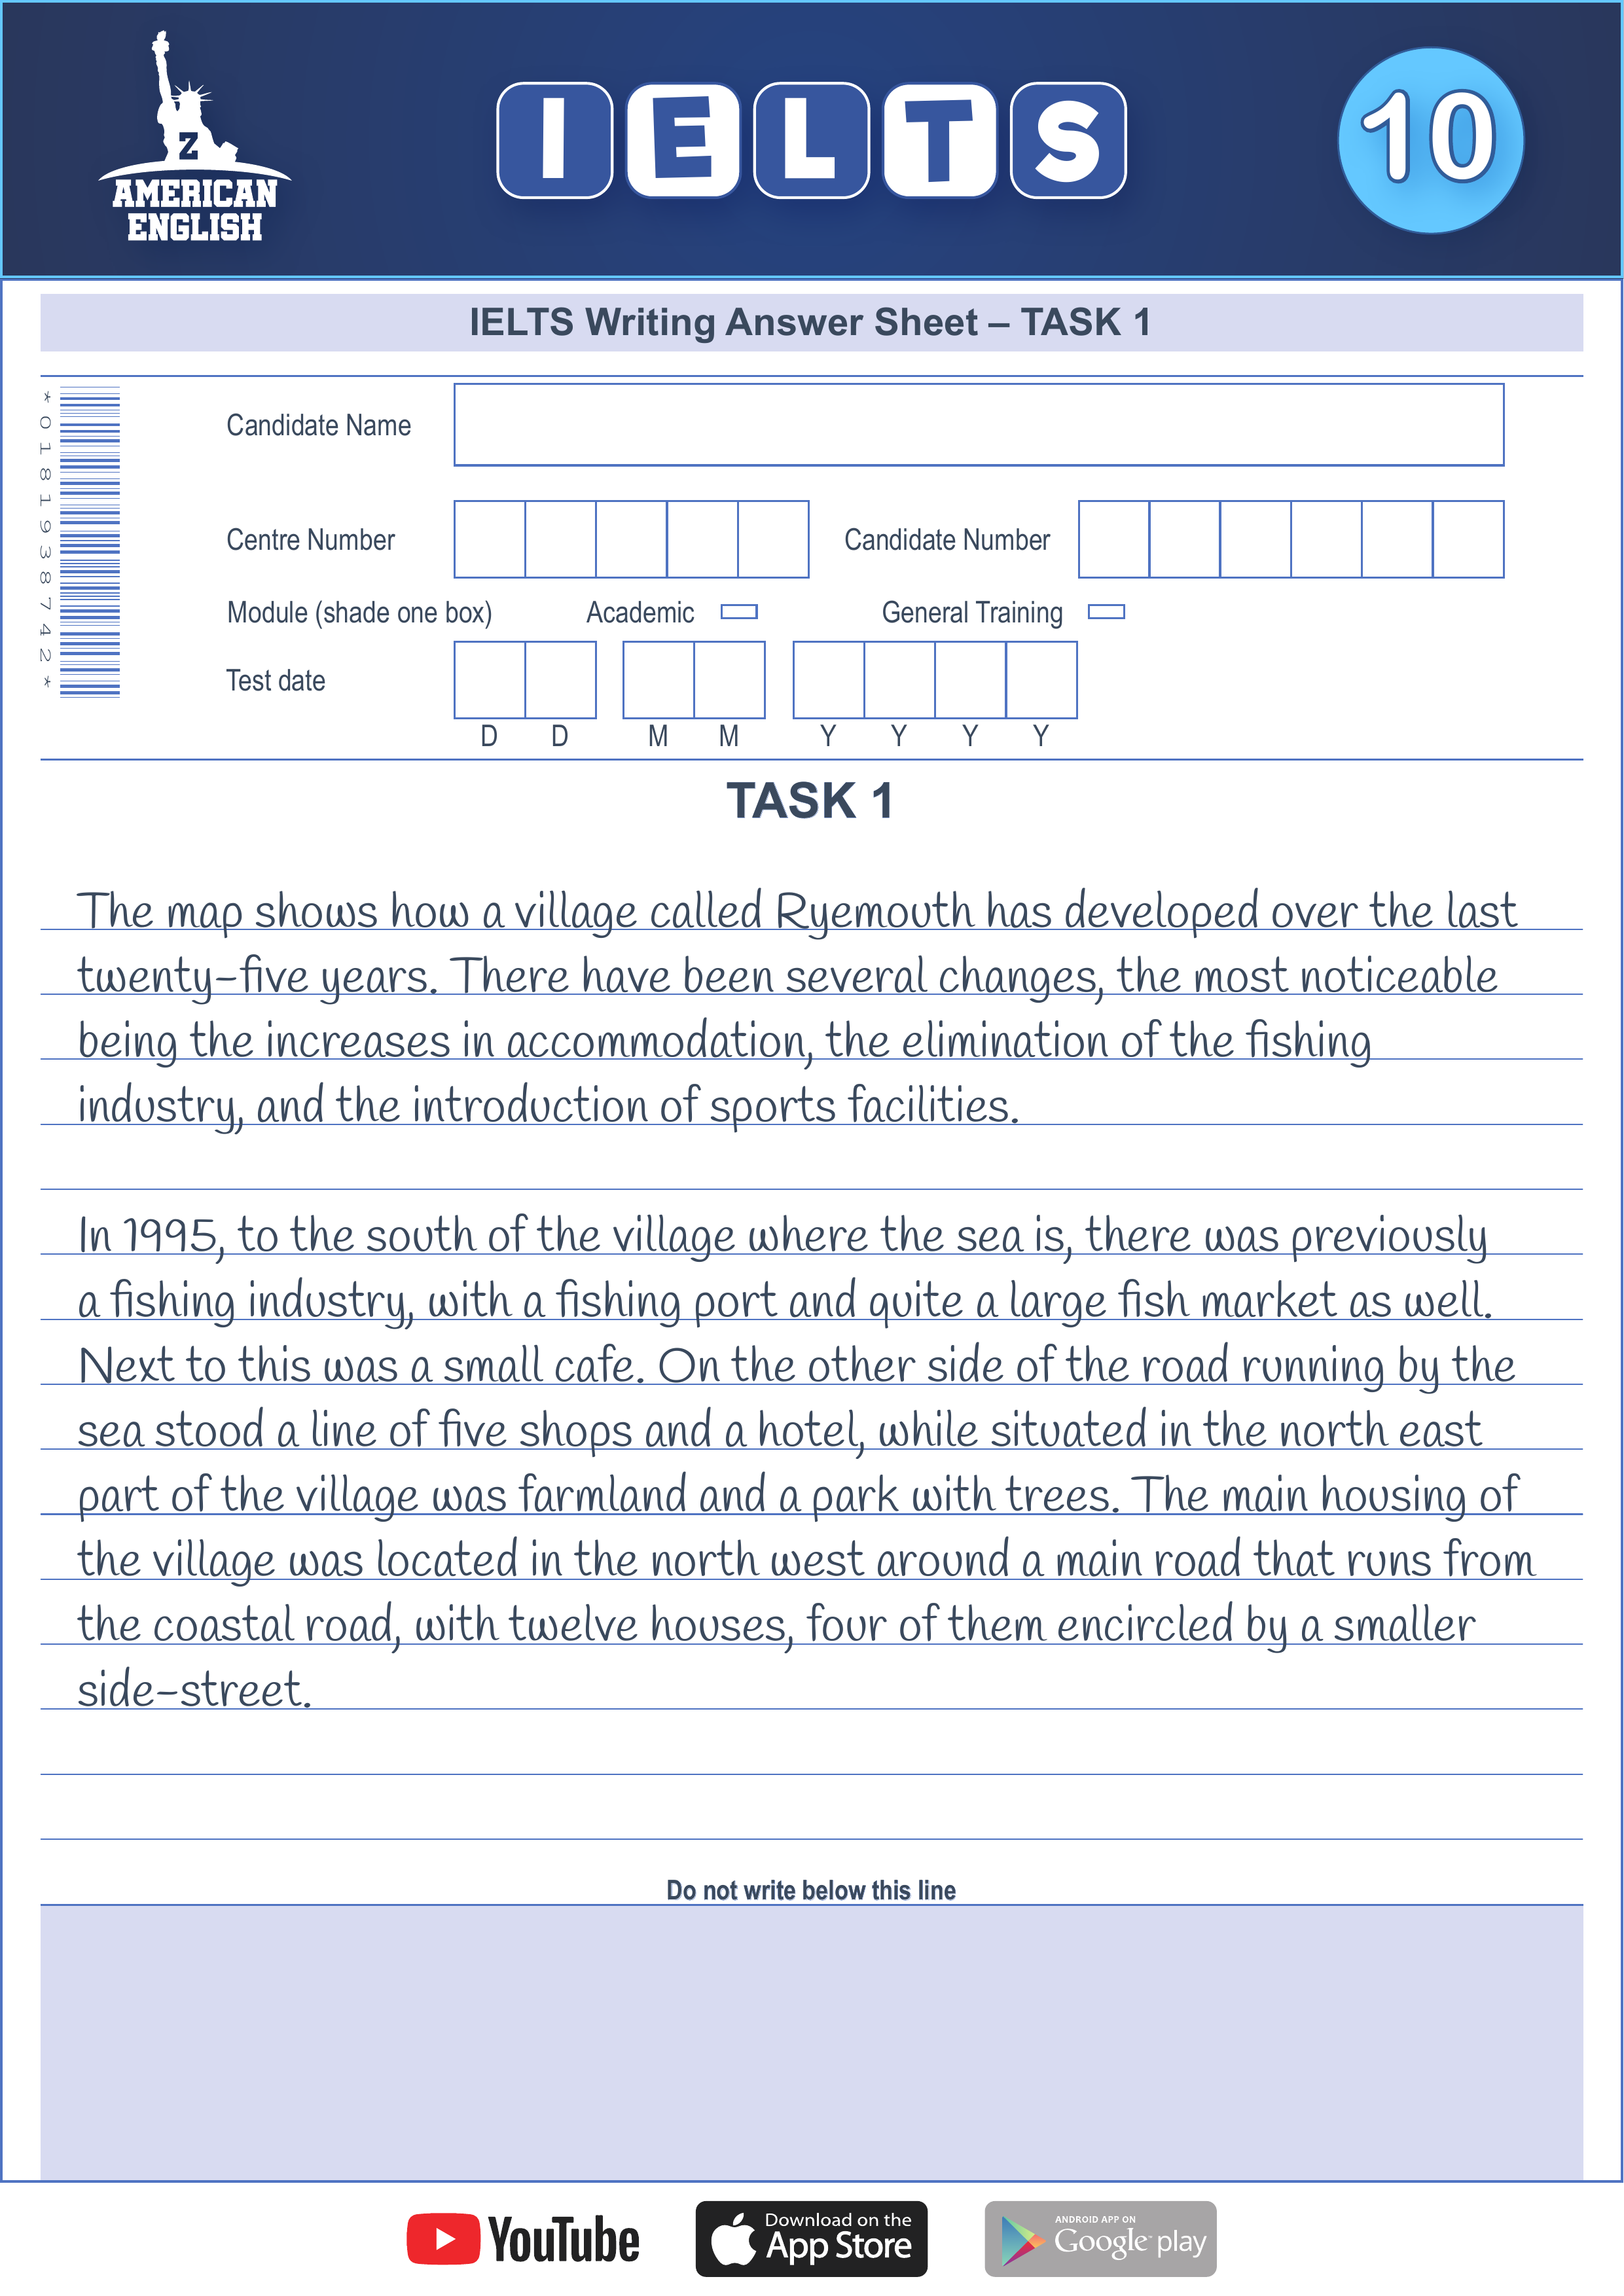 Z
AMERICAN
ENGLISH
IELTS
10
IELTS Writing Answer Sheet – TASK 1
*0181938742*
Candidate Name
Centre Number
Candidate Number
Module (shade one box)
Academic
General Training
Test date
D D M M Y Y Y Y
TASK 1
The map shows how a village called Ryemouth has developed over the last
twenty-five years. There have been several changes, the most noticeable
being the increases in accommodation, the elimination of the fishing
industry, and the introduction of sports facilities.
In 1995, to the south of the village where the sea is, there was previously
a fishing industry, with a fishing port and quite a large fish market as well.
Next to this was a small cafe. On the other side of the road running by the
sea stood a line of five shops and a hotel, while situated in the north east
part of the village was farmland and a park with trees. The main housing of
the village was located in the north west around a main road that runs from
the coastal road, with twelve houses, four of them encircled by a smaller
side-street.
Do not write below this line
YouTube
Download on the
App Store
ANDROID APP ON
Google play